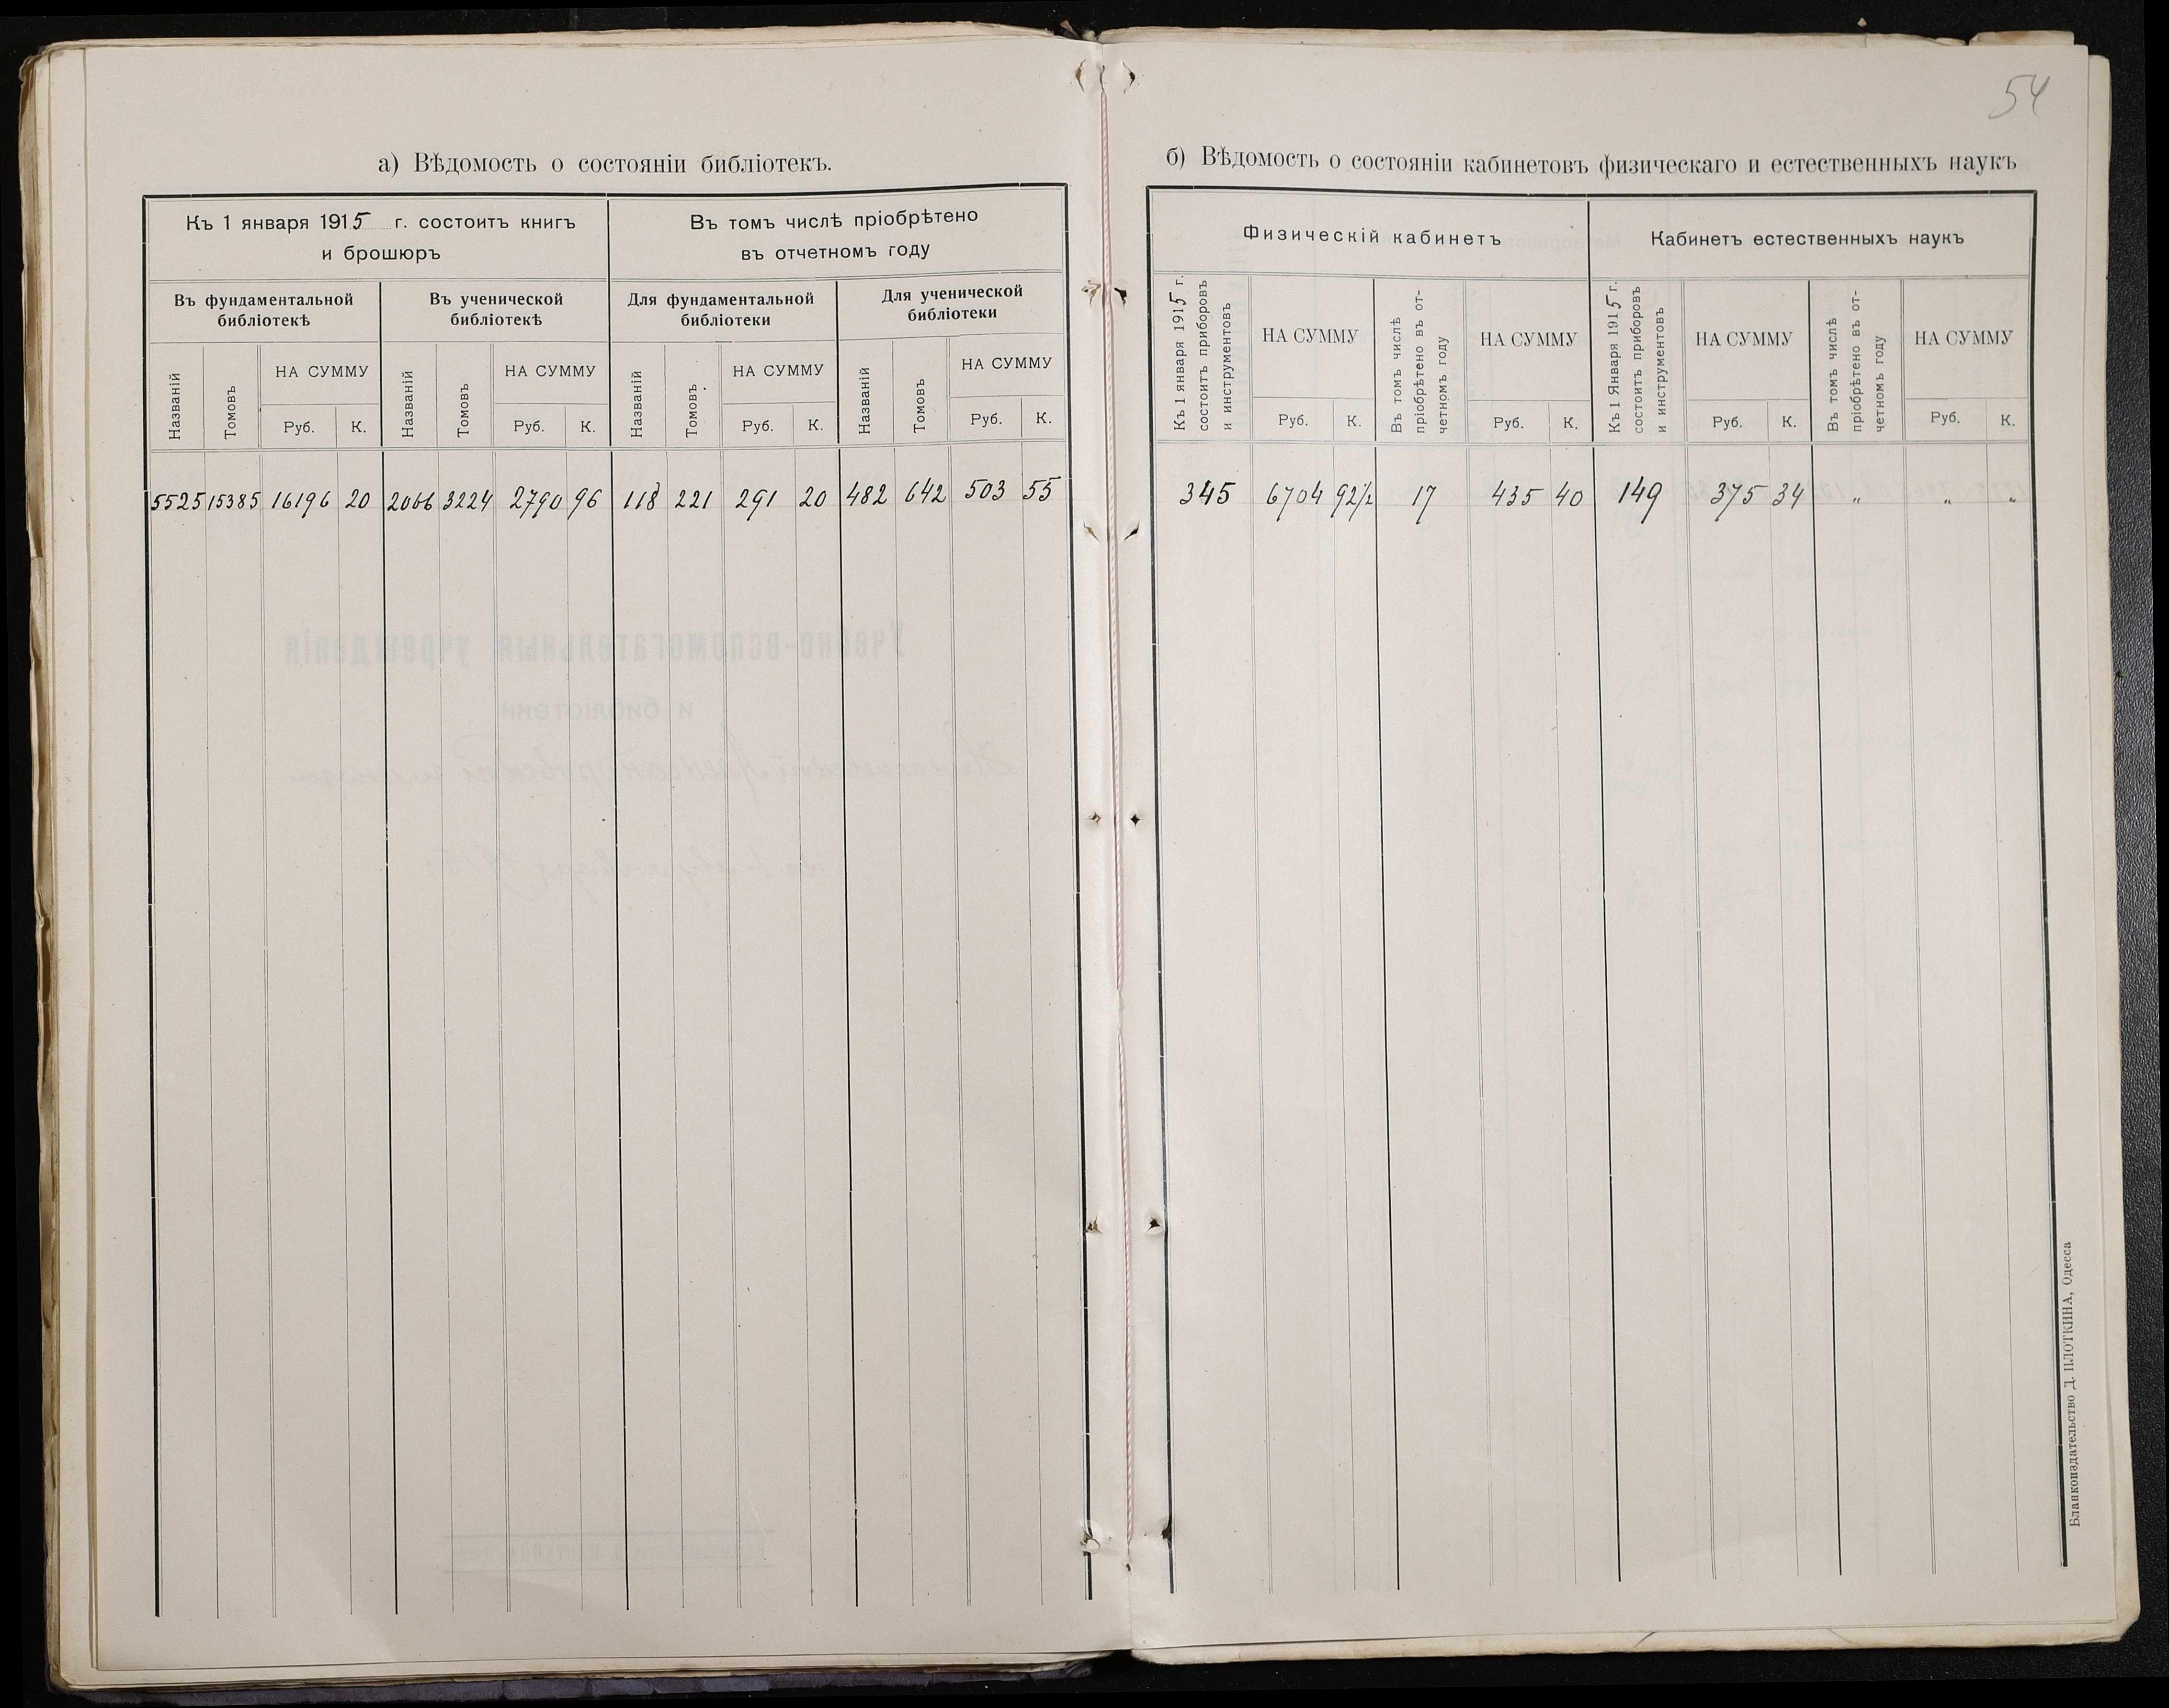 54
а) Вѣдомость о состоянiи библiотекъ.
Къ 1 января 1915 г. состоитъ книгъ
и брошюръ
Въ томъ числѣ прiобрѣтено
въ отчетномъ году
Въ фундаментальной
библiотекѣ
Въ ученической
библiотекѣ
Для фундаментальной
библiотеки
Для ученической
библiотеки
Названiй
Томовъ
НА СУММУ
Руб.
К.
Названiй
Томовъ
НА СУММУ
Руб.
К.
Названiй
Томовъ
НА СУММУ
Руб.
К.
Названiй
Томовъ
НА СУММУ
Руб.
К.
5525 15385 16196 20 2066 3224 2790 96 118 221 291 20 482 642 503 55
б) Вѣдомость о состоянiи кабинетовъ физическаго и естественныхъ наукъ
Физическiй кабинетъ
Кабинетъ естественныхъ наукъ
Къ 1 января 1915 г.
состоитъ приборовъ
и инструментовъ
НА СУММУ
Руб.
К.
Въ томъ числѣ
прiобрѣтено въ от-
четномъ году
НА СУММУ
Руб.
К.
Къ 1 Января 1915 г.
состоитъ приборовъ
и инструментовъ
НА СУММУ
Руб.
К.
Въ томъ числѣ
прiобрѣтено въ от-
четномъ году
НА СУММУ
Руб.
К.
345 6704 92½ 17 435 40 149 375 34 " " "
Бланкоиздательство Д. ПЛОТКИНА, Одесса